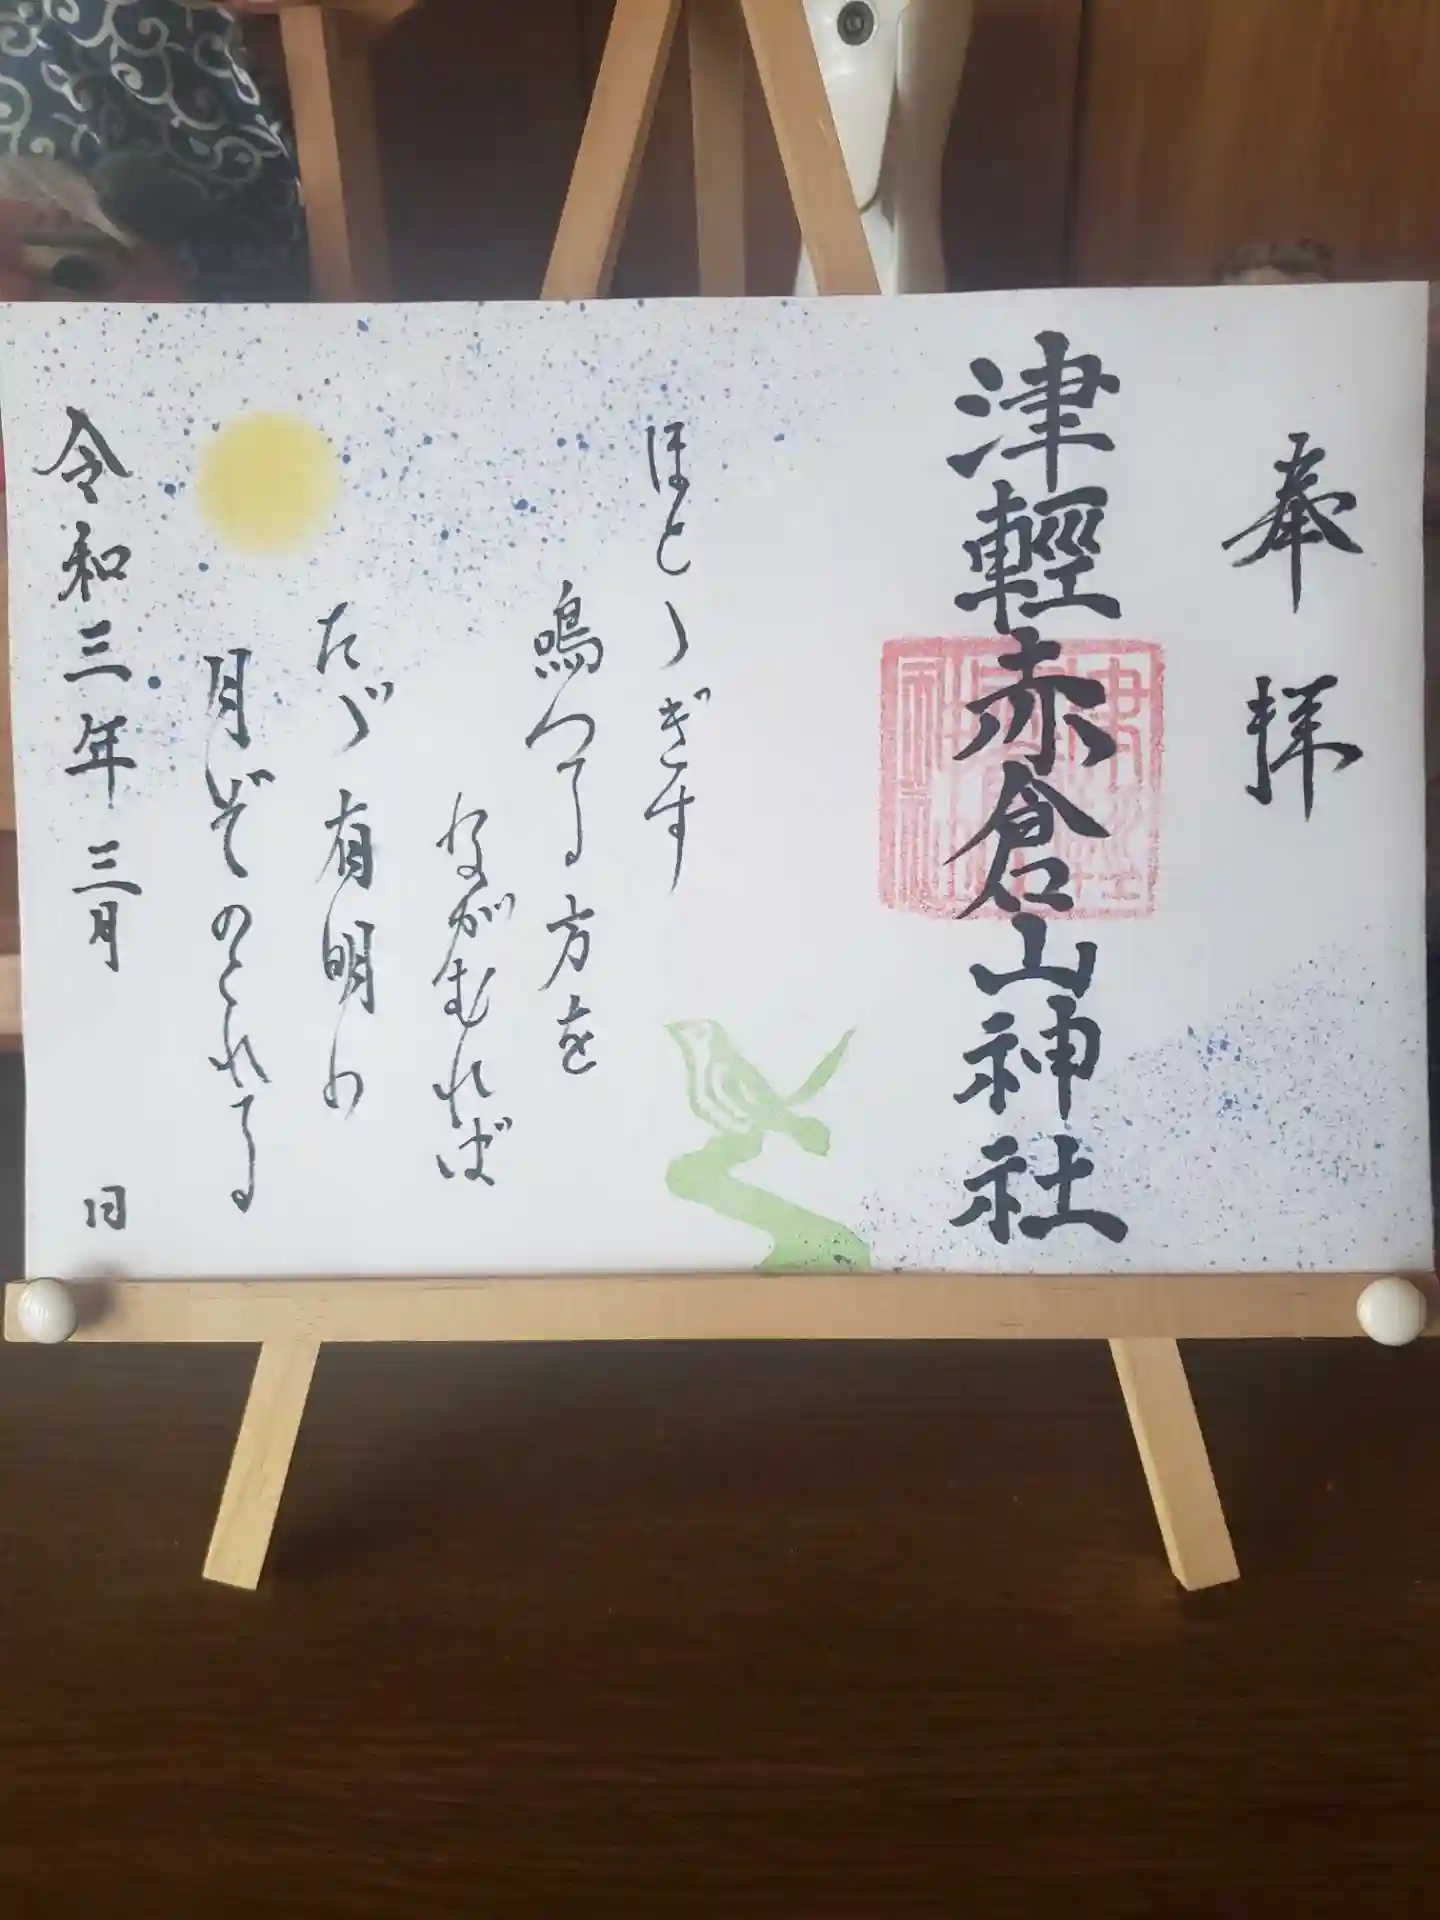 奉拝
津輕赤倉山神社
ほとゝぎす
鳴つる方を
ながむれば
たゞ有明の
月ぞのこれる
令和三年三月 日